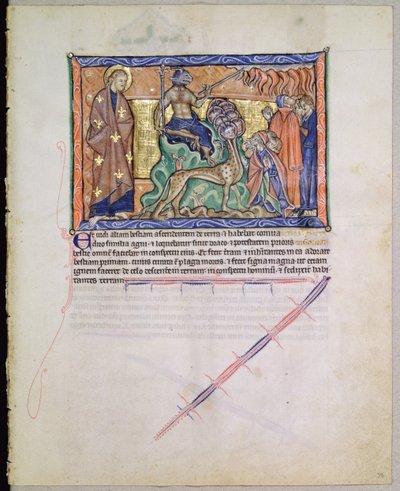 Et vidi aliam bestiam ascendentem de terra et habebat cornua
duo similia agni et loquebatur sicut draco et potestatem prioris
bestie omnem faciebat in conspectu eius. Et fecit terram et inhabitantes in ea adorare
bestiam primam. cuius curata est plaga mortis. et fecit signa magna ut etiam
ignem faceret de celo descendere in terram in conspectu hominum. et seduxit habi
tantes terram